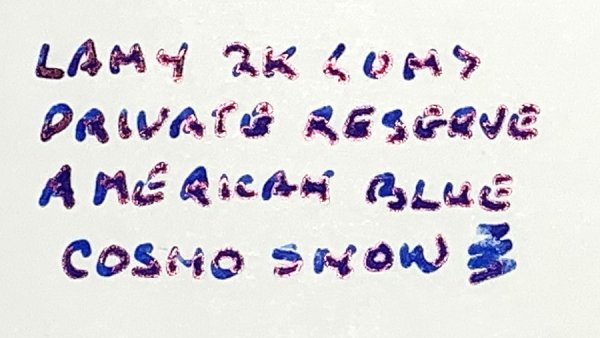 LAMY 2K <OM>
PRIVATE RESERVE
AMERICAN BLUE
COSMO SNOW